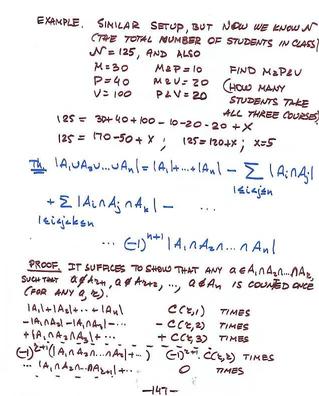 EXAMPLE. SIMILAR SETUP, BUT NOW WE KNOW N
(THE TOTAL NUMBER OF STUDENTS IN CLASS)
N=125, AND ALSO
M=30 M&P=10 FIND M&P&V
P=40 M&V=20 (HOW MANY
V=100 P&V=20 STUDENTS TAKE
ALL THREE COURSES)
125 = 30+40+100-10-20-20+X
125 = 170-50+X ; 125=120+X; X=5
Th. |A₁∪A₂∪...∪Aₙ| = |A₁|+...+|Aₙ| - ∑ |Aᵢ∩Aⱼ|
1≤i<j≤n
+ ∑ |Aᵢ∩Aⱼ∩Aₖ| - ...
1≤i<j<k≤n
... (-1)ⁿ⁺¹ |A₁∩A₂∩...∩Aₙ|
PROOF. IT SUFFICES TO SHOW THAT ANY a∈A₁∩A₂∩...∩A_z,
SUCH THAT a∉A_z+1, a∉A_z+2, ..., a∉Aₙ IS COUNTED ONCE
(FOR ANY a, z).
|A₁|+|A₂|+...+|Aₙ| C(z,1) TIMES
-|A₁∩A₂|-|A₁∩A₃|-... -C(z,2) TIMES
+|A₁∩A₂∩A₃|+... +C(z,3) TIMES
(-1)^z+1(|A₁∩A₂∩...∩A_z|+...) (-1)^z+1·C(z,z) TIMES
... |A₁∩A₂∩...∩A_z+1|+... 0 TIMES
-147-